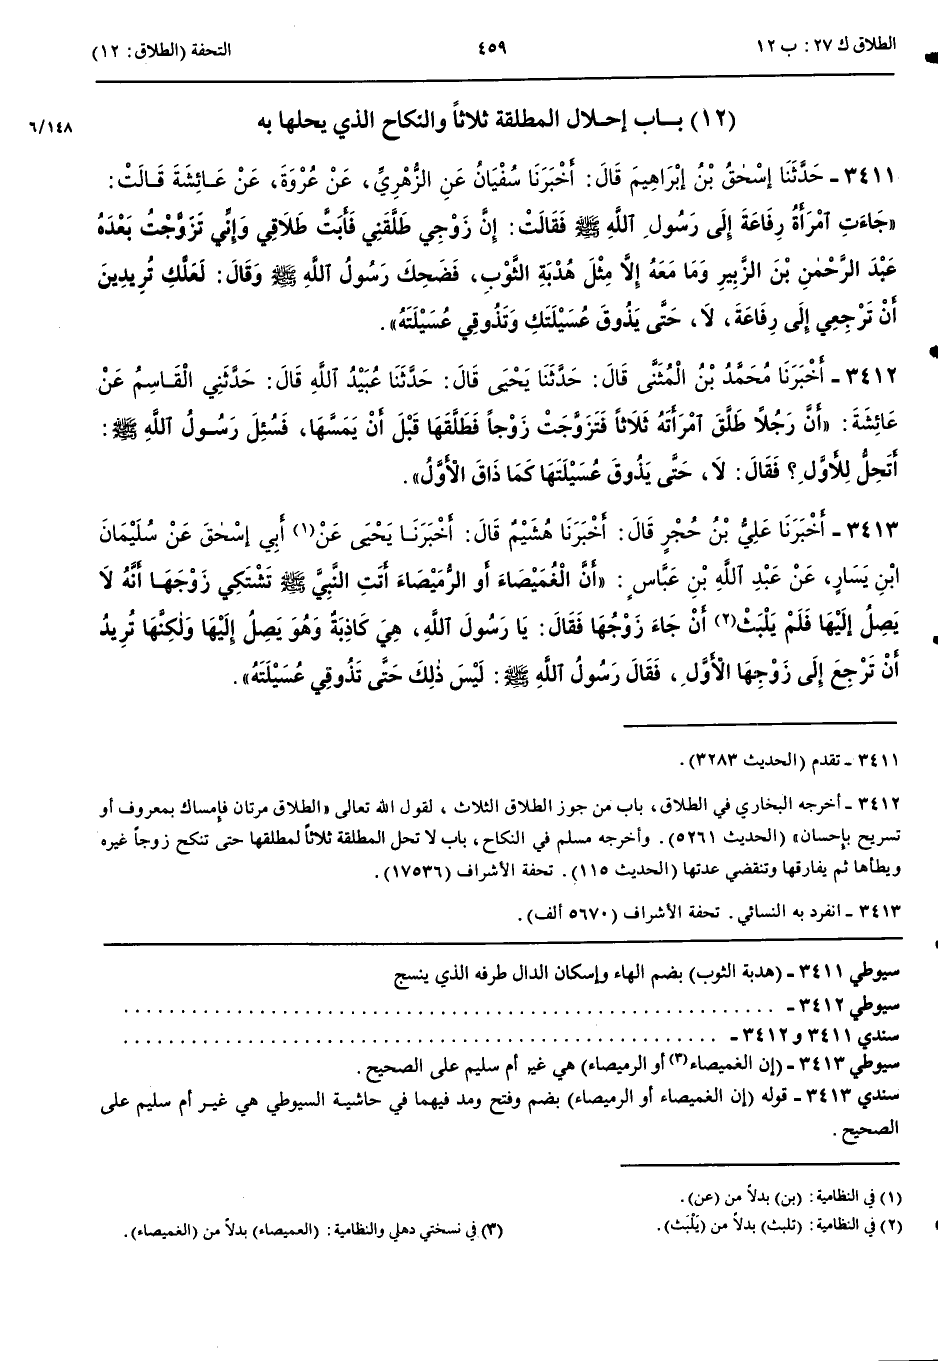 الطلاق ك ٢٧: ب ١٢
٤٥٩
التحفة (الطلاق: ١٢)
(١٢) بـاب إحـلال المطلقة ثلاثاً والنكاح الذي يحلها به
٦/١٤٨
٣٤١١ - حَدَّثَنَا إِسْحٰقُ بْنُ إِبْرَاهِيمَ قَالَ: أَخْبَرَنَا سُفْيَانُ عَنِ الزُّهْرِيِّ، عَنْ عُرْوَةَ، عَنْ عَـائِشَةَ قَـالَتْ:
«جَاءَتِ ٱمْرَأَةُ رِفَاعَةَ إِلَى رَسُولِ ٱللَّهِ ﷺ فَقَالَتْ: إِنَّ زَوْجِي طَلَّقَنِي فَأَبَتَّ طَلَاقِي وَإِنِّي تَزَوَّجْتُ بَعْدَهُ
عَبْدَ الرَّحْمٰنِ بْنَ الزَّبِيرِ وَمَا مَعَهُ إِلَّا مِثْلَ هُدْبَةِ الثَّوْبِ، فَضَحِكَ رَسُولُ ٱللَّهِ ﷺ وَقَالَ: لَعَلَّكِ تُرِيدِينَ
أَنْ تَرْجِعِي إِلَى رِفَاعَةَ، لَا، حَتَّى يَذُوقَ عُسَيْلَتَكِ وَتَذُوقِي عُسَيْلَتَهُ».
٣٤١٢ - أَخْبَرَنَا مُحَمَّدُ بْنُ الْمُثَنَّى قَالَ: حَدَّثَنَا يَحْيَى قَالَ: حَدَّثَنَا عُبَيْدُ ٱللَّهِ قَالَ: حَدَّثَنِي الْقَـاسِمُ عَنْ
عَائِشَةَ: «أَنَّ رَجُلًا طَلَّقَ ٱمْرَأَتَهُ ثَلَاثاً فَتَزَوَّجَتْ زَوْجاً فَطَلَّقَهَا قَبْلَ أَنْ يَمَسَّهَا، فَسُئِلَ رَسُـولُ ٱللَّهِ ﷺ:
أَتَحِلُّ لِلْأَوَّلِ؟ فَقَالَ: لَا، حَتَّى يَذُوقَ عُسَيْلَتَهَا كَمَا ذَاقَ الْأَوَّلُ».
٣٤١٣ - أَخْبَرَنَا عَلِيُّ بْنُ حُجْرٍ قَالَ: أَخْبَرَنَا هُشَيْمٌ قَالَ: أَخْبَرَنَـا يَحْيَى عَنْ(١) أَبِي إِسْحٰقَ عَنْ سُلَيْمَانَ
ابْنِ يَسَارٍ، عَنْ عَبْدِ ٱللَّهِ بْنِ عَبَّاسٍ: «أَنَّ الْغُمَيْصَاءَ أَوِ الرُّمَيْصَاءَ أَتَتِ النَّبِيَّ ﷺ تَشْتَكِي زَوْجَهَـا أَنَّهُ لَا
يَصِلُ إِلَيْهَا فَلَمْ يَلْبَثْ(٢) أَنْ جَاءَ زَوْجُهَا فَقَالَ: يَا رَسُولَ ٱللَّهِ، هِيَ كَاذِبَةٌ وَهُوَ يَصِلُ إِلَيْهَا وَلٰكِنَّهَا تُرِيدُ
أَنْ تَرْجِعَ إِلَى زَوْجِهَا الْأَوَّلِ، فَقَالَ رَسُولُ ٱللَّهِ ﷺ: لَيْسَ ذٰلِكَ حَتَّى تَذُوقِي عُسَيْلَتَهُ».
٣٤١١ - تقدم (الحديث ٣٢٨٣).
٣٤١٢ - أخرجه البخاري في الطلاق، باب من جوز الطلاق الثلاث، لقول الله تعالى «الطلاق مرتان فإمساك بمعروف أو
تسريح بإحسان» (الحديث ٥٢٦١). وأخرجه مسلم في النكاح، باب لا تحل المطلقة ثلاثاً لمطلقها حتى تنكح زوجاً غيره
ويطأها ثم يفارقها وتنقضي عدتها (الحديث ١١٥). تحفة الأشراف (١٧٥٣٦).
٣٤١٣ - انفرد به النسائي. تحفة الأشراف (٥٦٧٠ ألف).
سيوطي ٣٤١١ - (هدبة الثوب) بضم الهاء وإسكان الدال طرفه الذي ينسج
سيوطي ٣٤١٢ - . . . . . . . . . . . . . . . . . . . . . . . . . . . . . . . . . . . . . . . .
سندي ٣٤١١ و٣٤١٢ - . . . . . . . . . . . . . . . . . . . . . . . . . . . . . . . . . . . .
سيوطي ٣٤١٣ - (إن الغميصاء(٣) أو الرميصاء) هي غير أم سليم على الصحيح.
سندي ٣٤١٣ - قوله (إن الغميصاء أو الرميصاء) بضم وفتح ومد فيهما في حاشيـة السيوطي هي غيـر أم سليم على
الصحيح.
(١) في النظامية: (بن) بدلاً من (عن).
(٢) في النظامية: (تلبث) بدلاً من (يَلْبَث).
(٣) في نسختي دهلي والنظامية: (العميصاء) بدلاً من (الغميصاء).